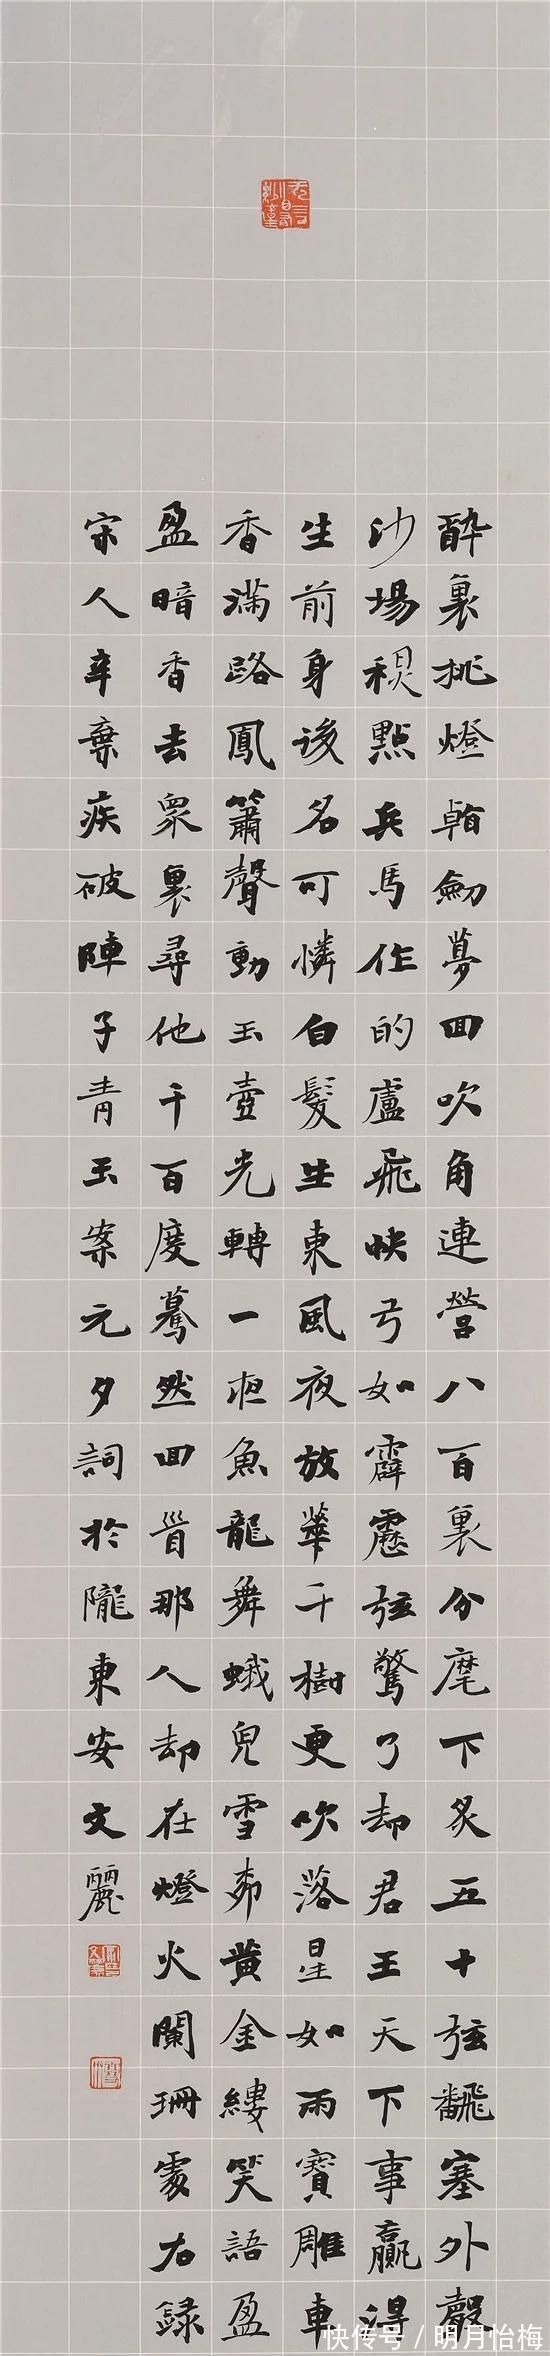 醉裏挑燈看劍夢回吹角連營八百裏分麾下炙五十弦翻塞外聲
沙場秋點兵馬作的盧飛快弓如霹靂弦驚了却君王天下事贏得
生前身後名可憐白髮生東風夜放華千樹更吹落星如雨寶雕車
香滿路鳳簫聲動玉壺光轉一夜魚龍舞蛾兒雪柳黃金縷笑語盈
盈暗香去衆裏尋他千百度驀然回首那人却在燈火闌珊處右錄
宋人辛棄疾破陣子青玉案元夕詞於隴東安文麗
快传号 / 明月怡梅